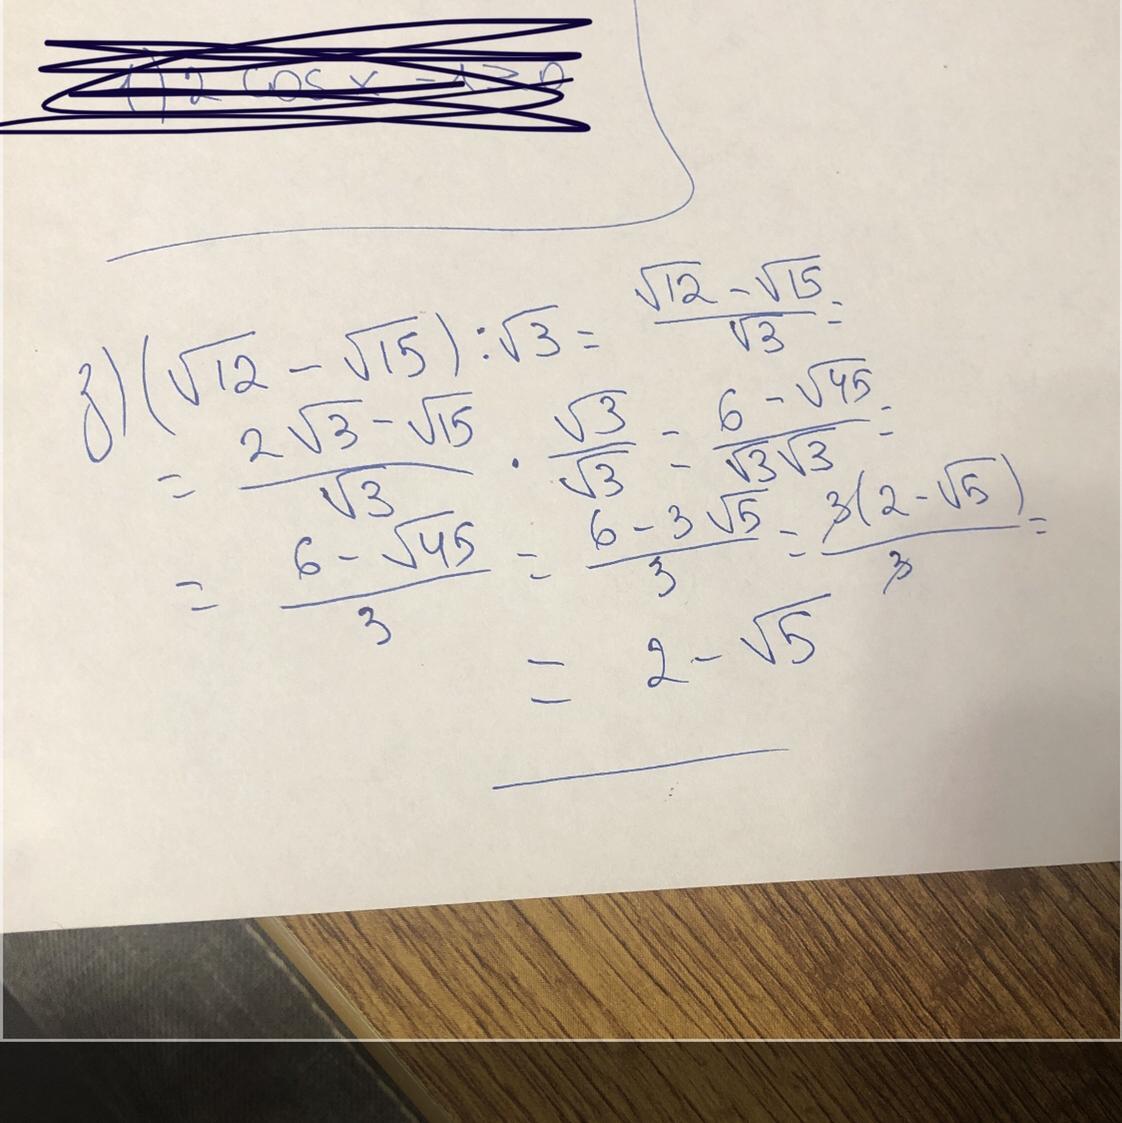 1) 2 cos x - 1 > 0
з) (√12 - √15) : √3 = (√12 - √15)/√3 =
= (2√3 - √15)/√3 · √3/√3 = (6 - √45)/(√3√3) =
= (6 - √45)/3 = (6 - 3√5)/3 = 3(2 - √5)/3 =
= 2 - √5